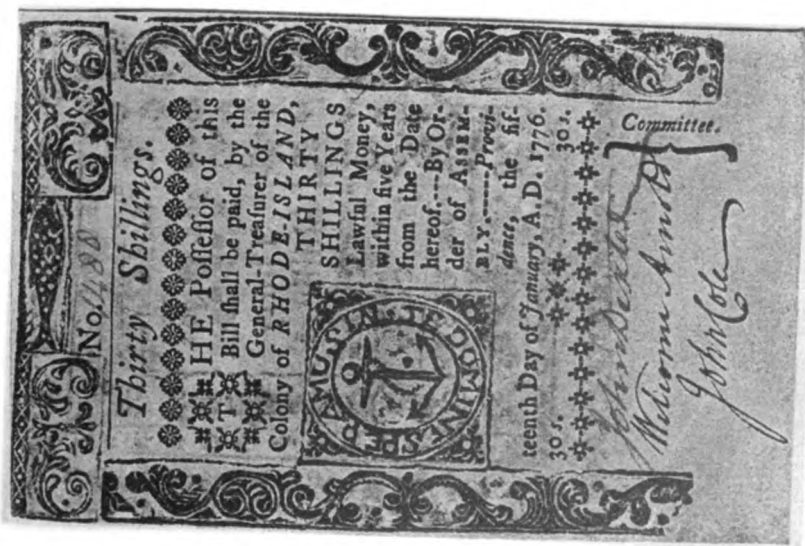 No. 1488
Thirty Shillings.
THE Possessor of this
Bill shall be paid, by the
General-Treasurer of the
Colony of RHODE-ISLAND,
THIRTY
SHILLINGS
Lawful Money,
within five Years
from the Date
hereof.---By Or-
der of ASSEM-
BLY,----Provi-
dence, the fif-
IN TE DOMINE SPERAMUS
teenth Day of January, A.D. 1776.
30 s. 30 s.
John Dexter
Welcome Arnold
John Cole
Committee.